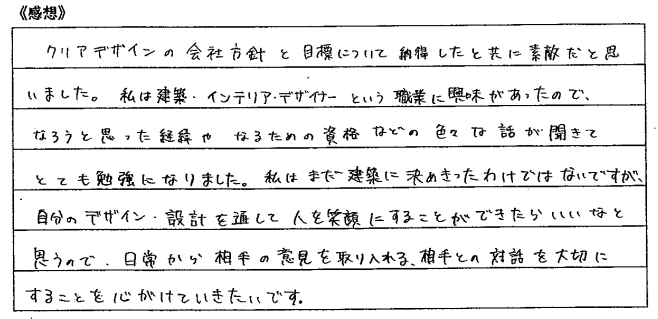 《感想》
クリアデザインの会社方針と目標について納得したと共に素敵だと思
いました。私は建築・インテリア・デザイナーという職業に興味があったので、
なろうと思った経緯や なるための資格などの色々な話が聞きて
とても勉強になりました。私はまだ建築に決めきったわけではないですが、
自分のデザイン・設計を通して人を笑顔にすることができたらいいなと
思うので、日常から相手の意見を取り入れる、相手との対話を大切に
することを心がけていきたいです。